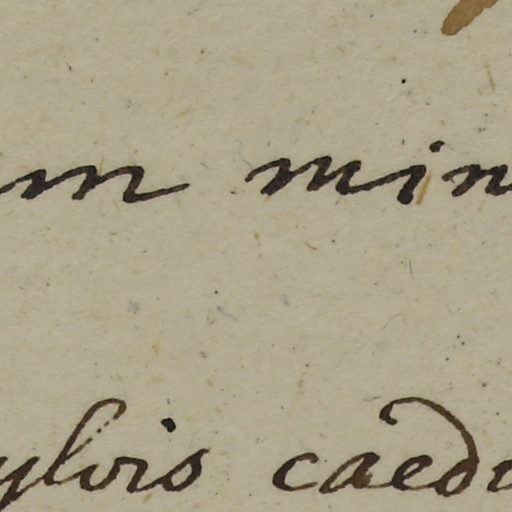 m min
ylvis caedu